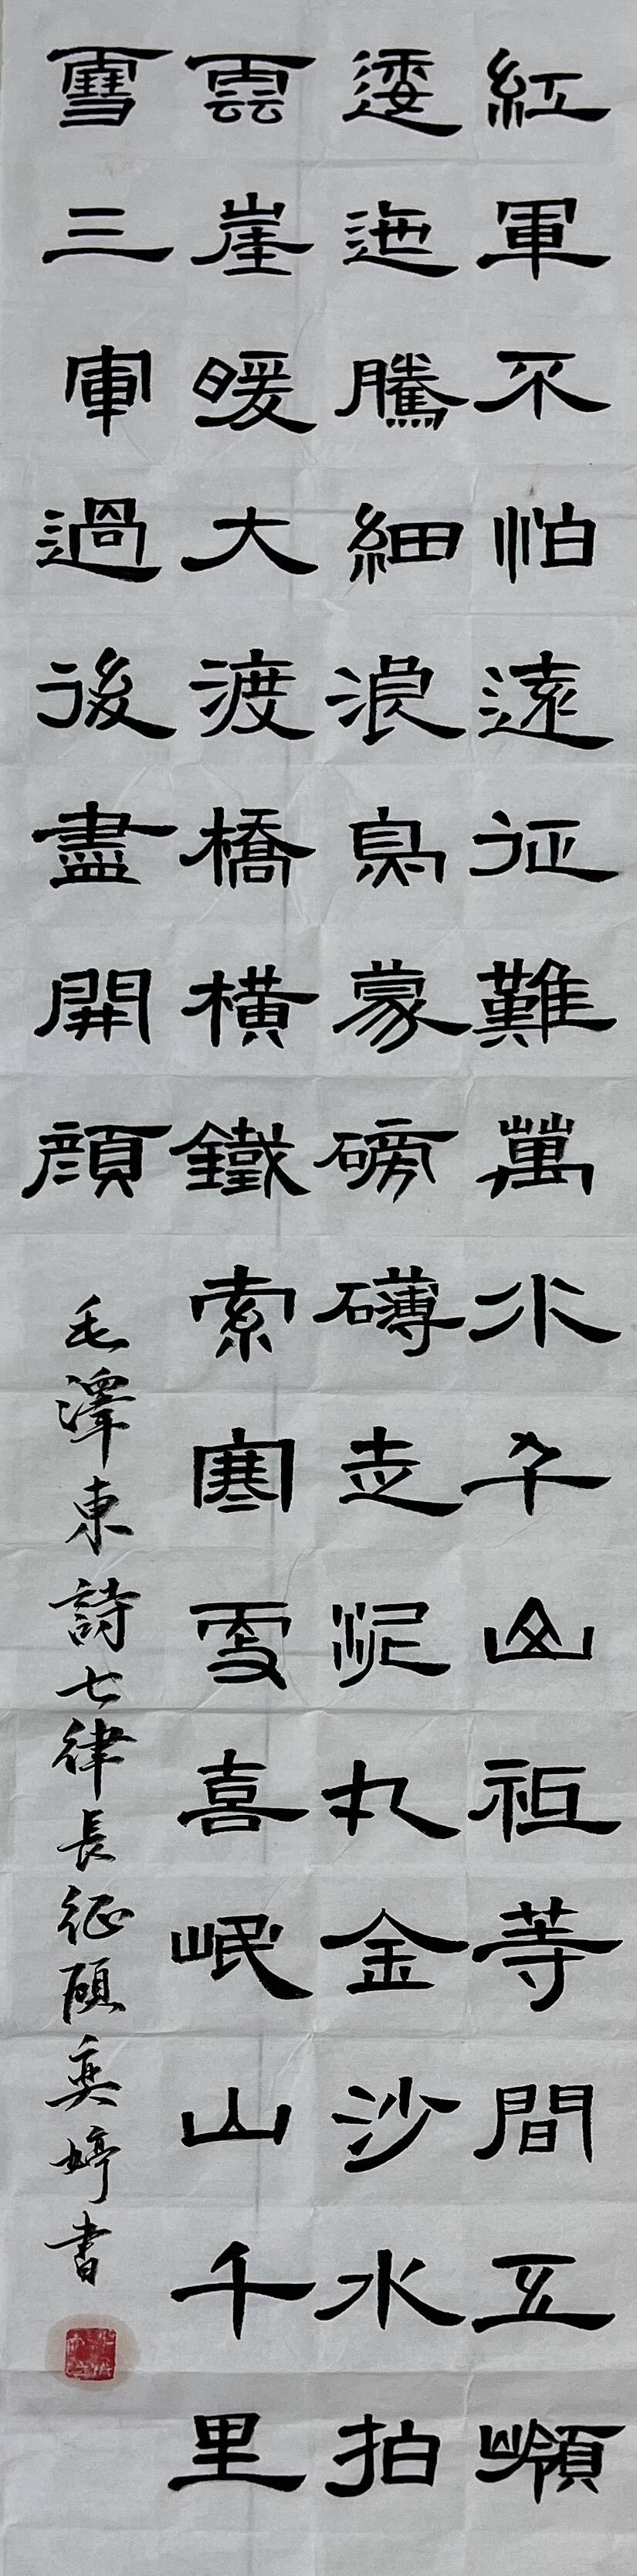 紅軍不怕遠征難萬水千山祗等間五嶺
逶迤騰細浪烏蒙磅礴走泥丸金沙水拍
雲崖暖大渡橋橫鐵索寒更喜岷山千里
雪三軍過後盡開顔
毛澤東詩七律長征顧奕婷書